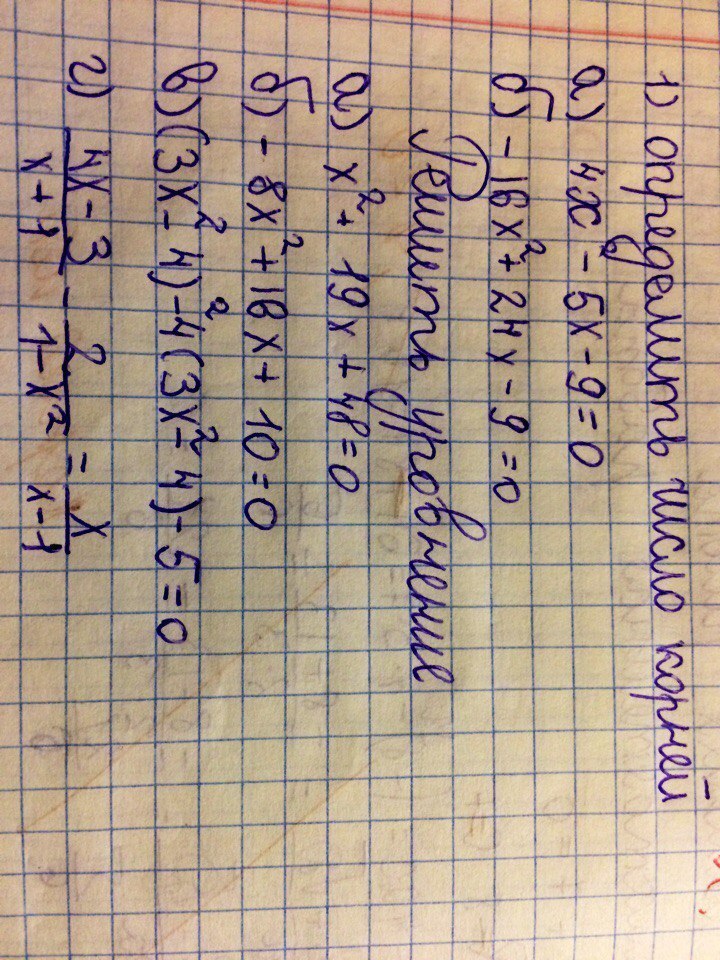 1) определить число корней
а) 4x - 5x - 9 = 0
б) - 16x² + 24x - 9 = 0
Решить уровнение
а) x² + 19x + 48 = 0
б) - 8x² + 16x + 10 = 0
в) (3x² - 4)² - 4(3x² - 4) - 5 = 0
г) (4x - 3)/(x + 1) - 2/(1 - x²) = x/(x - 1)